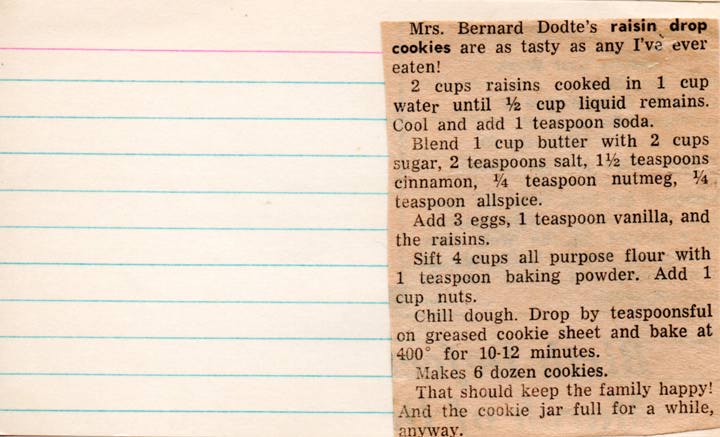 Mrs. Bernard Dodte's raisin drop
cookies are as tasty as any I've ever
eaten!
2 cups raisins cooked in 1 cup
water until ½ cup liquid remains.
Cool and add 1 teaspoon soda.
Blend 1 cup butter with 2 cups
sugar, 2 teaspoons salt, 1½ teaspoons
cinnamon, ¼ teaspoon nutmeg, ¼
teaspoon allspice.
Add 3 eggs, 1 teaspoon vanilla, and
the raisins.
Sift 4 cups all purpose flour with
1 teaspoon baking powder. Add 1
cup nuts.
Chill dough. Drop by teaspoonsful
on greased cookie sheet and bake at
400° for 10-12 minutes.
Makes 6 dozen cookies.
That should keep the family happy!
And the cookie jar full for a while,
anyway.